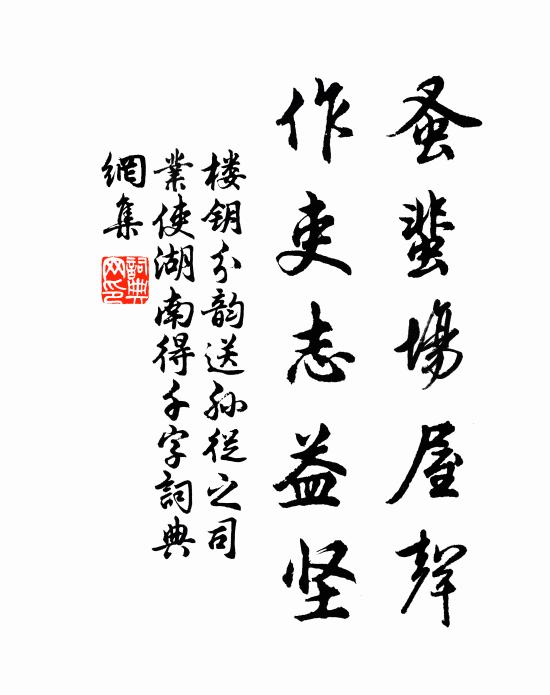 蚤蜚場屋聲
作吏志益坚
楼钥分韵送孙從之司
業使湖南得千字詞典
網集
詞典網印